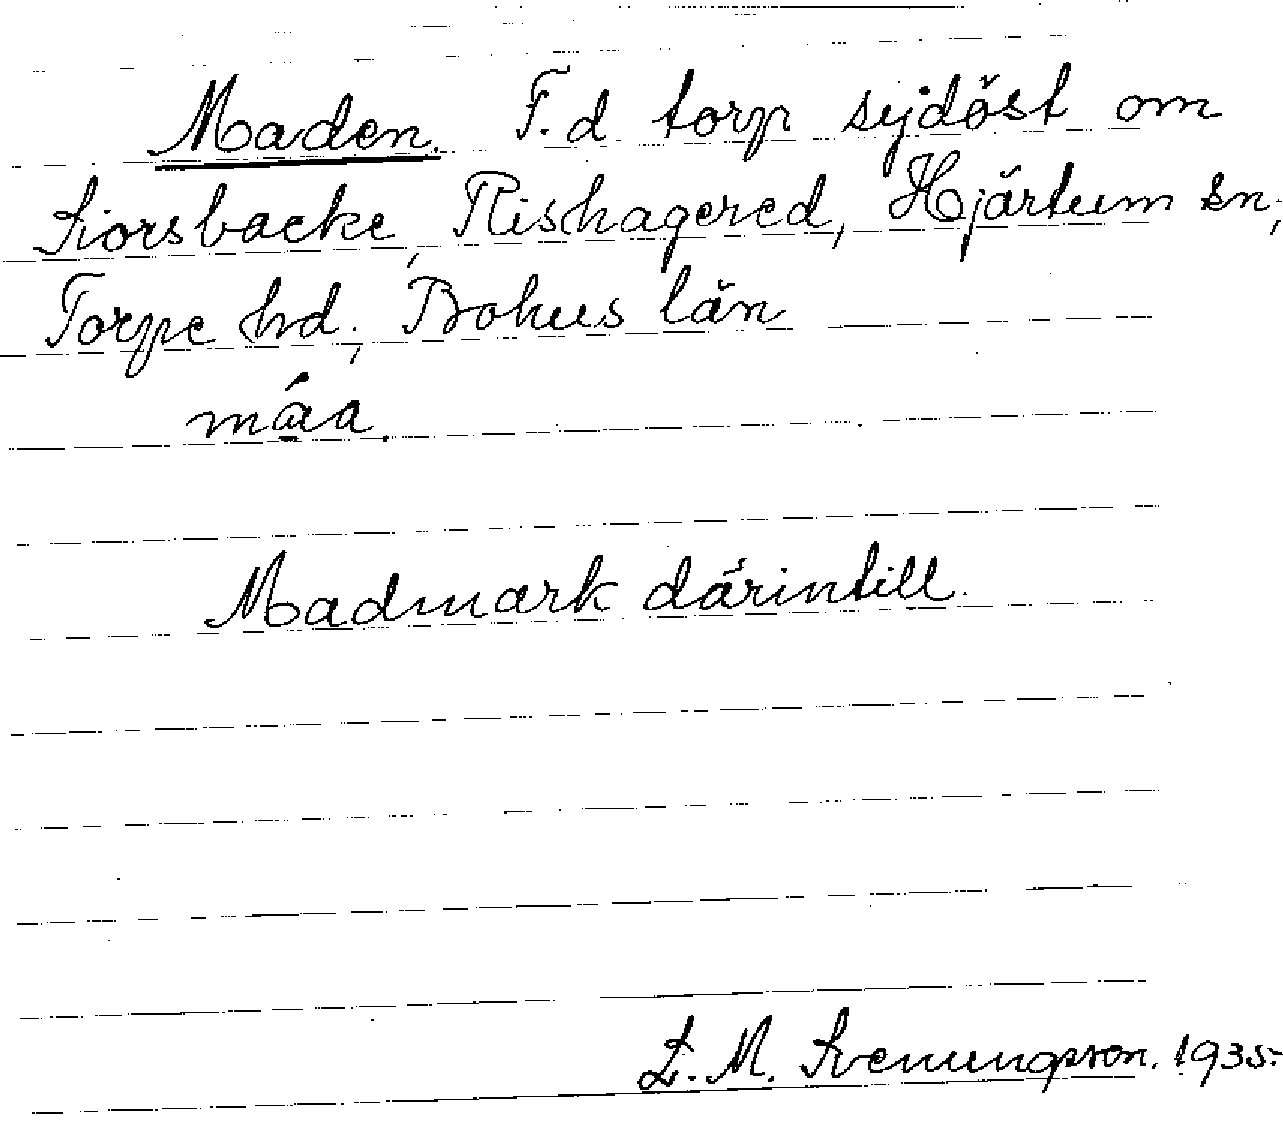 Maden. F.d torp sydöst om
Siorsbacke, Rishagered, Hjärtum sn,
Torpe hd, Bohus län
måa.
Madmark därintill.
L. M. Svenungsson. 1935.